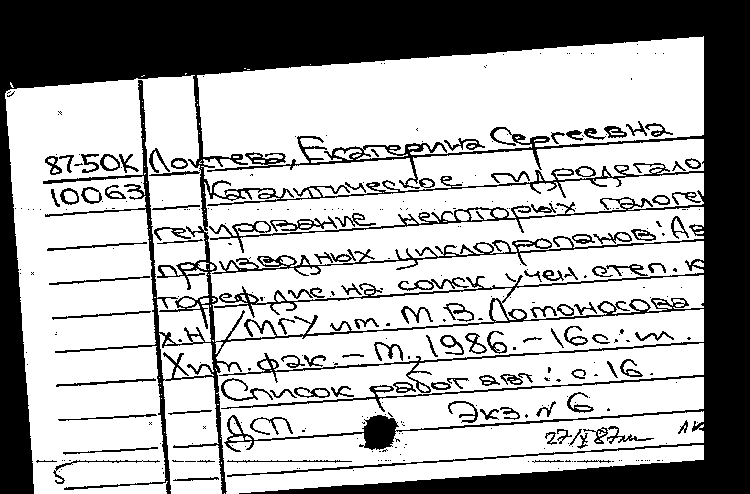 87-50К Локтева, Екатерина Сергеевна
10063 Каталитическое гидродегало
генирование некоторых галоген
производных циклопропанов: Ав
тореф. дис. на соиск. учен. степ. к
х.н. / МГУ им. М.В. Ломоносова.
Хим. фак. - М., 1986. - 16с.: ил.
Список работ авт.: с. 16.
ДСП. Экз. № 6.
27/X 87
5